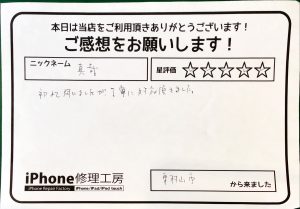 本日は当店をご利用頂きありがとうございます!
ご感想をお願いします!
ニックネーム
真哉
星評価 ☆☆☆☆☆
初めて伺いましたが丁寧に対応頂きました。
iPhone修理工房
iPhone Repair Factory iPhone/iPad/iPod touch
東村山市
から来ました